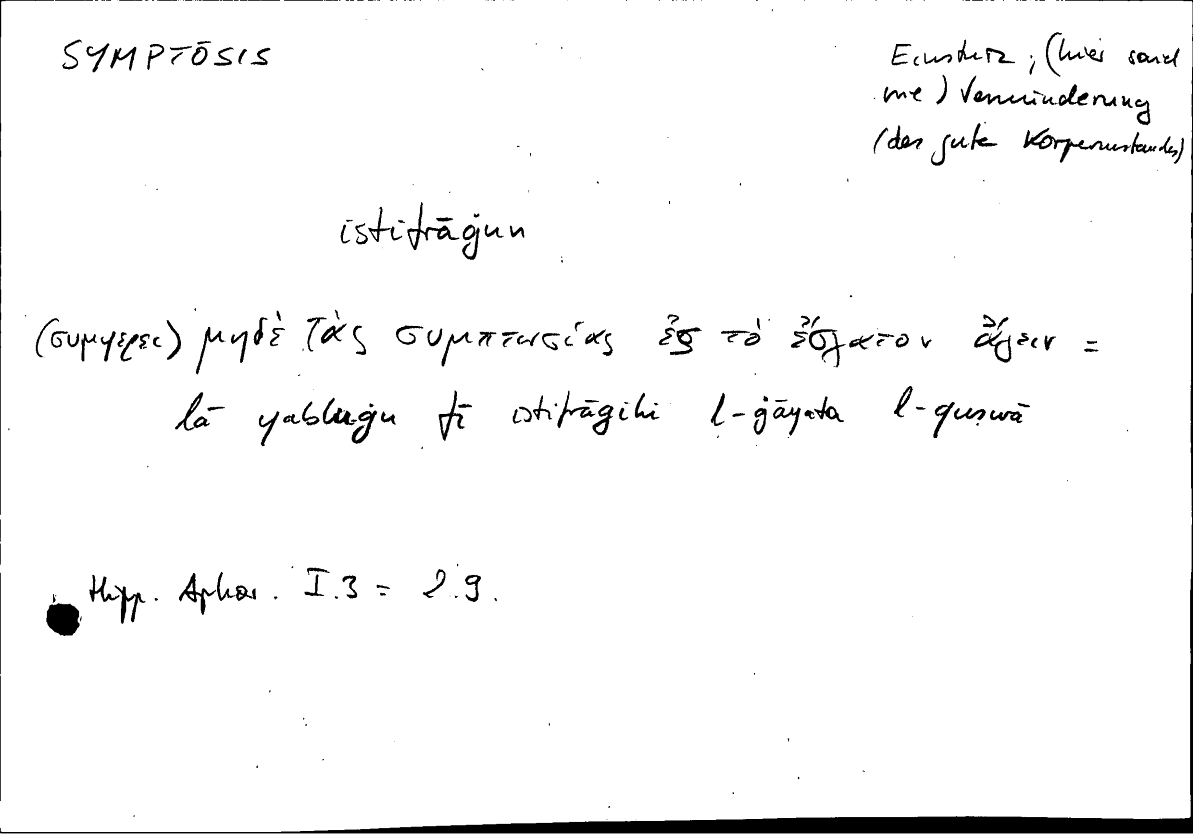 SYMPTŌSIS
Einsturz; (hier soviel
wie) Verminderung
(des guten Körperzustandes)
istifrāġun
(συμφέρει) μηδὲ τὰς συμπτωσίας ἐς τὸ ἔσχατον ἄγειν =
lā yabluġu fī istifrāġihi l-ġāyata l-quṣwā
Hipp. Aphor. I.3 = 2.9.